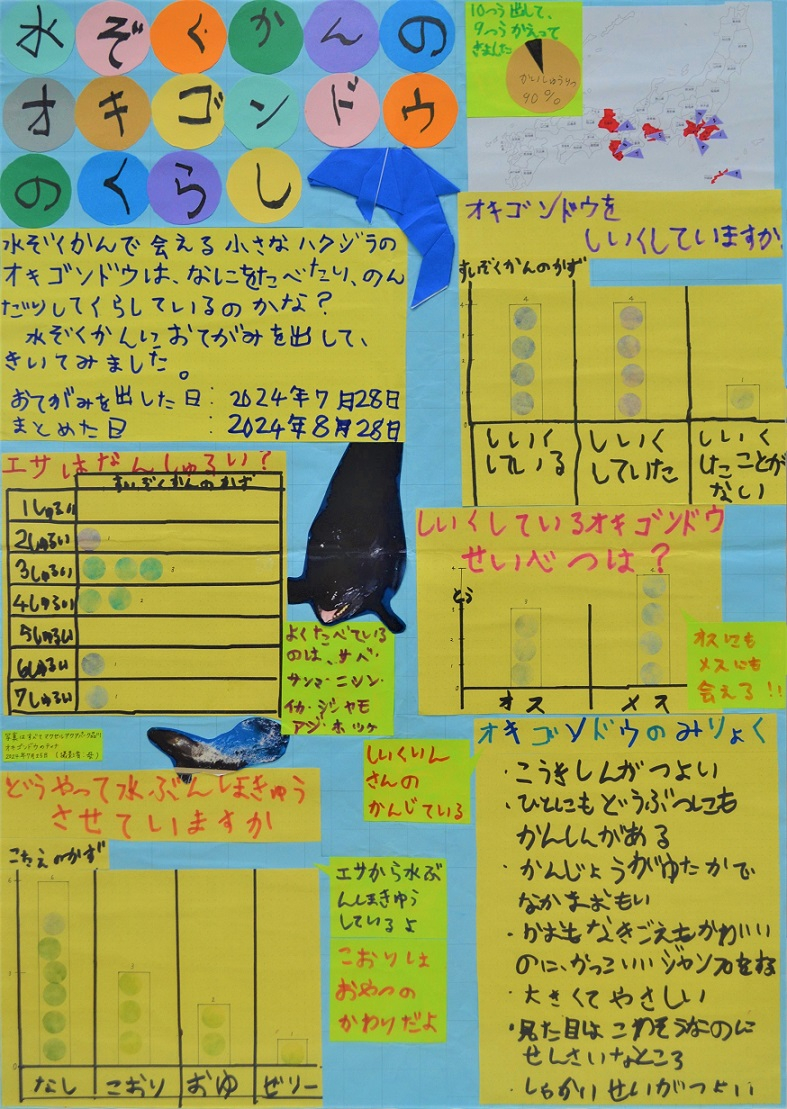 水ぞくかんの
オキゴンドウ
のくらし
10つう出して、
9つうかえって
きました
かいしゅうりつ
90%
水ぞくかんで会える小さなハクジラの
オキゴンドウは、なにをたべたり、のん
だりしてくらしているのかな?
水ぞくかんにおてがみを出して、
きいてみました。
おてがみを出した日:2024年7月28日
まとめた日:2024年8月28日
オキゴンドウを
しいくしていますか
すいぞくかんのかず
4
4
1
しいく
している
しいく
していた
しいく
したことが
ない
エサはなんしゅるい?
すいぞくかんのかず
1しゅるい
2しゅるい 1
3しゅるい 3
4しゅるい 2
5しゅるい
6しゅるい 1
7しゅるい 1
よくたべている
のは、サバ・
サンマ・ニシン・
イカ・シシャモ
アジ・ホッケ
しいくしているオキゴンドウ
せいべつは?
とう
3
4
オス
メス
オスにも
メスにも
会える!!
オキゴンドウのティナ
2024年7月25日
どうやって水ぶんほきゅう
させていますか
こたえのかず
6
3
2
1
なし
こおり
おゆ
ゼリー
エサから水ぶ
んほきゅう
しているよ
こおりは
おやつの
かわりだよ
しいくいん
さんの
かんじている
オキゴンドウのみりょく
・こうきしんがつよい
・ひとにもどうぶつにも
かんしんがある
・かんじょうがゆたかで
なかまおもい
・かおもなきごえもかわいい
のに、かっこいいジャンプをする
・大きくてやさしい
・見た目はこわそうなのに
せんさいなところ
・しゃかいせいがつよい